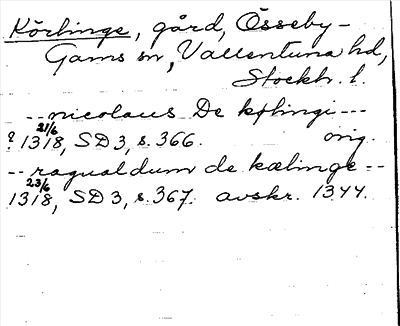 Körlinge, gård, Össeby-
Garns sn, Vallentuna hd,
Stockh. l.
-- nicolaus De kølingi ---
? 1318 21/6, SD 3, s. 366. orig.
-- ragualdum de kælinge --
1318 23/6, SD 3, s. 367. avskr. 1344.